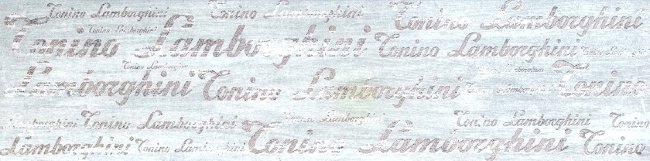 Tonino Lamborghini Tonino Lamborghini Tonino Lamborghini
Tonino Lamborghini
Tonino Lamborghini Tonino Lamborghini
Lamborghini Tonino Lamborghini Tonino
Tonino Lamborghini Tonino Lamborghini
Lamborghini Tonino Lamborghini Tonino Lamborghini